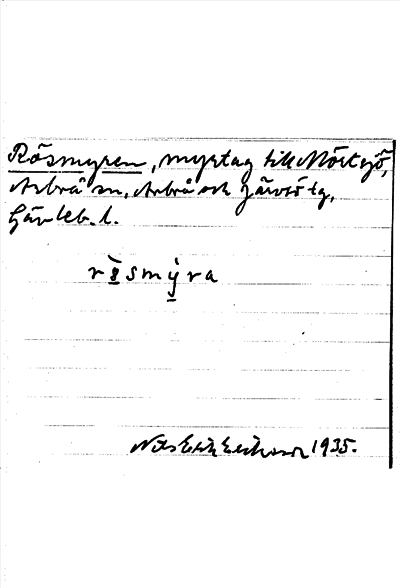 Rösmyren, myrtag till Mörtsjö,
Arbrå sn, Arbrå och Järvsö tg,
Gävleb. l.
rösmýra
Nils Erik Eriksson 1935.